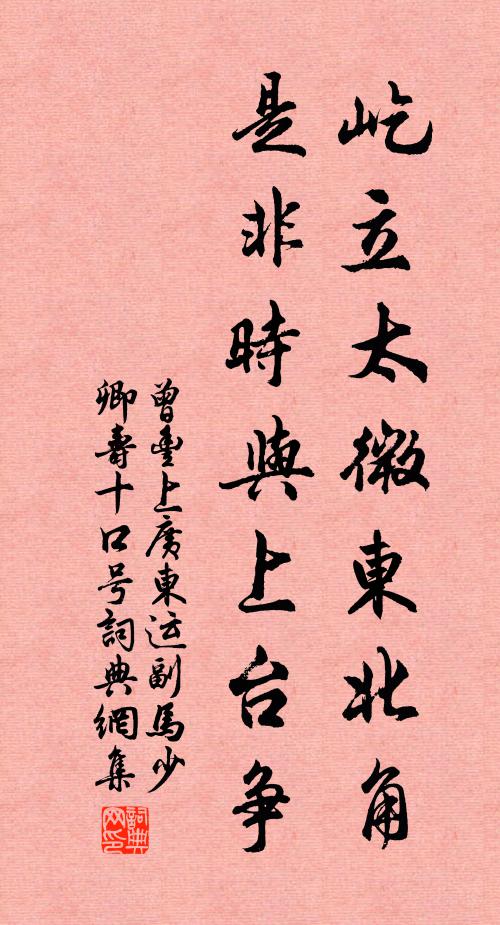 屹立太微東北角
是非時與上台争
曾豐上廣東运副馬少
卿壽十口号詞典網集
詞典
网印